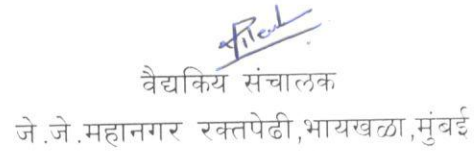 वैद्यकिय संचालक
जे.जे.महानगर रक्तपेढी,भायखळा,मुंबई